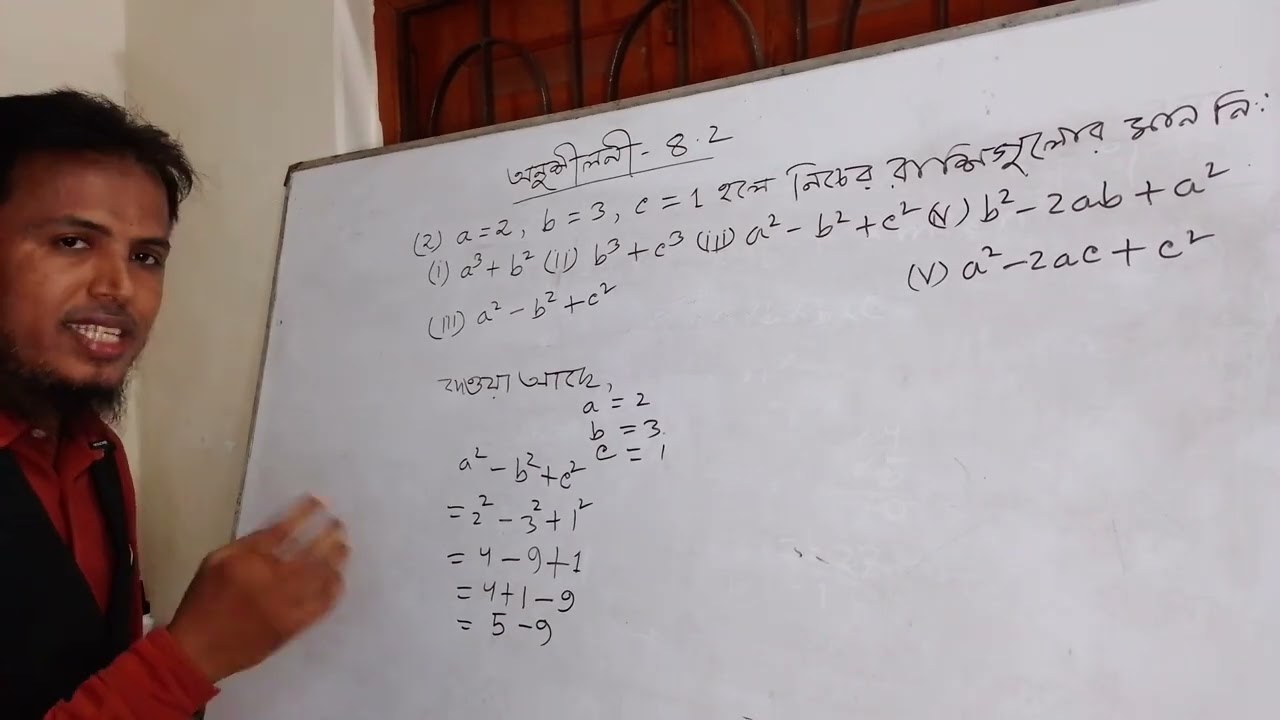 অনুশীলনী - ৪.2
(2) a = 2, b = 3, c = 1 হলে নিচের রাশিগুলোর মান নি:
(i) a³ + b² (ii) b³ + c³ (iii) a² - b² + c² (iv) b² - 2ab + a²
(v) a² - 2ac + c²
(iii) a² - b² + c²
দেওয়া আছে,
a = 2
b = 3
c = 1
a² - b² + c²
= 2² - 3² + 1²
= 4 - 9 + 1
= 4 + 1 - 9
= 5 - 9